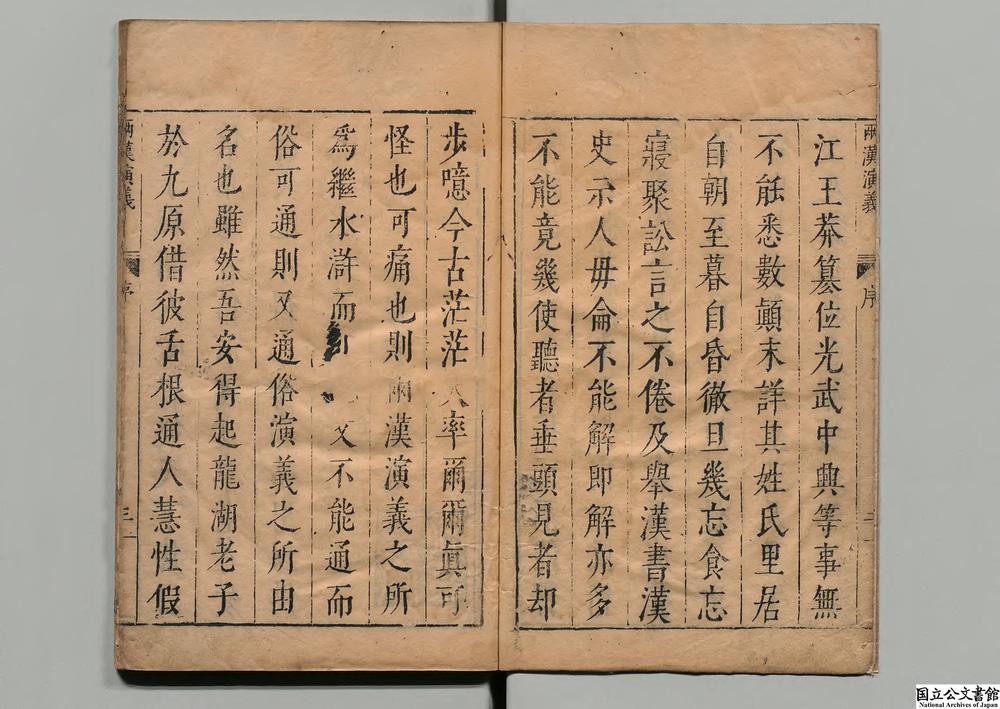 兩漢演義 序 二
江王莽篡位光武中興等事無
不能悉數顛末詳其姓氏里居
自朝至暮自昏徹旦幾忘食忘
寢聚訟言之不倦及舉漢書漢
史示人毋侖不能解即解亦多
不能竟幾使聽者垂頭見者却
步噫今古茫茫大率爾爾眞可
怪也可痛也則兩漢演義之所
爲繼水滸而文不能通而
俗可通則又通俗演義之所由
名也雖然吾安得起龍湖老子
於九原借彼舌根通人慧性假
兩漢演義 序 三
国立公文書館
National Archives of Japan